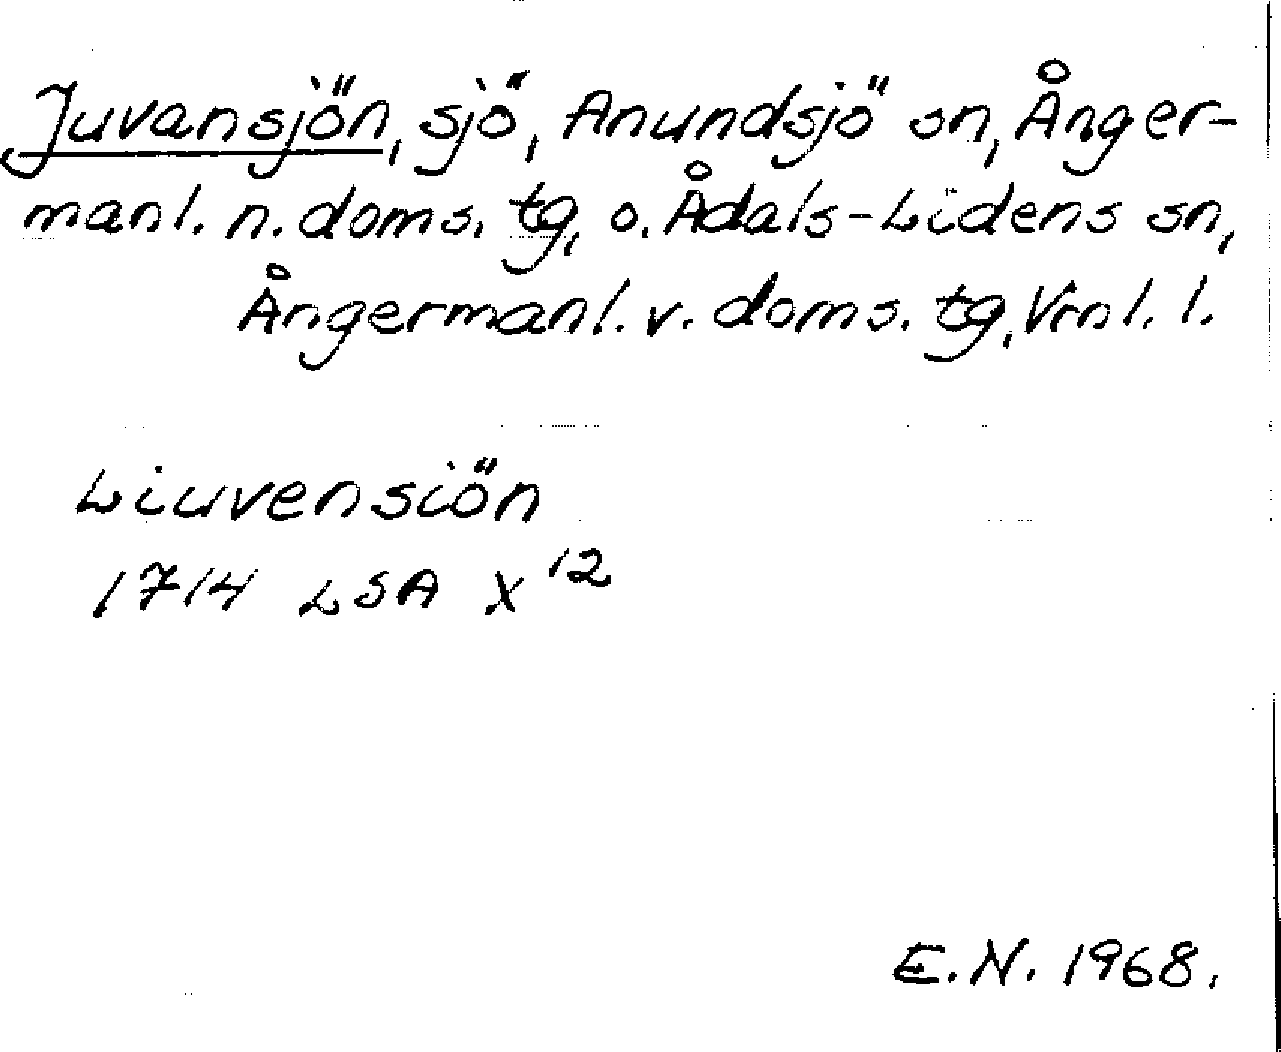 Juvansjön, sjö, Anundsjö sn, Ånger-
manl. n. doms. tg, o. Ådals-Lidens sn,
Ångermanl. v. doms. tg, Vnl. l.
Liuvensiön
1714 LSA X 12
E.N. 1968.